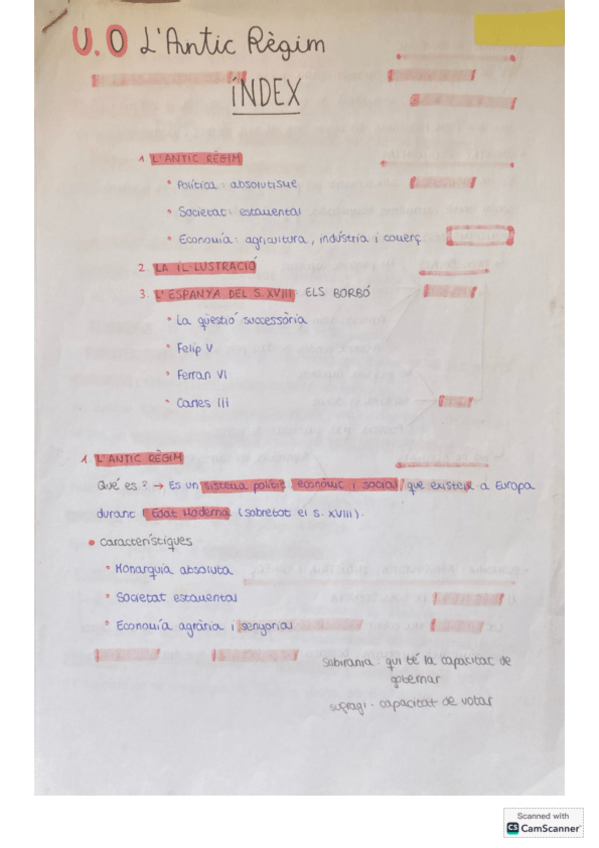 U.0 L'Antic Règim
ÍNDEX
1 L'ANTIC RÈGIM
• Política: absolutisme
• Societat: estamental
• Economía: agricultura, indústria i comerç
2. LA IL·LUSTRACIÓ
3. L'ESPANYA DEL S. XVIII: ELS BORBÓ
• La qüestió successòria
• Felip V
• Ferran VI
• Carles III
1. L'ANTIC RÈGIM
Qué es? → Es un sistema polític, econòmic i social, que existeix a Europa
durant l'Edat Moderna (sobretot el S. XVIII).
• característiques
• Monarquia absoluta
• Societat estamental
• Economía agrària i senyorial
sobirania: qui té la capacitat de
gobernar
sufragi · capacitat de votar
Scanned with
CS CamScanner